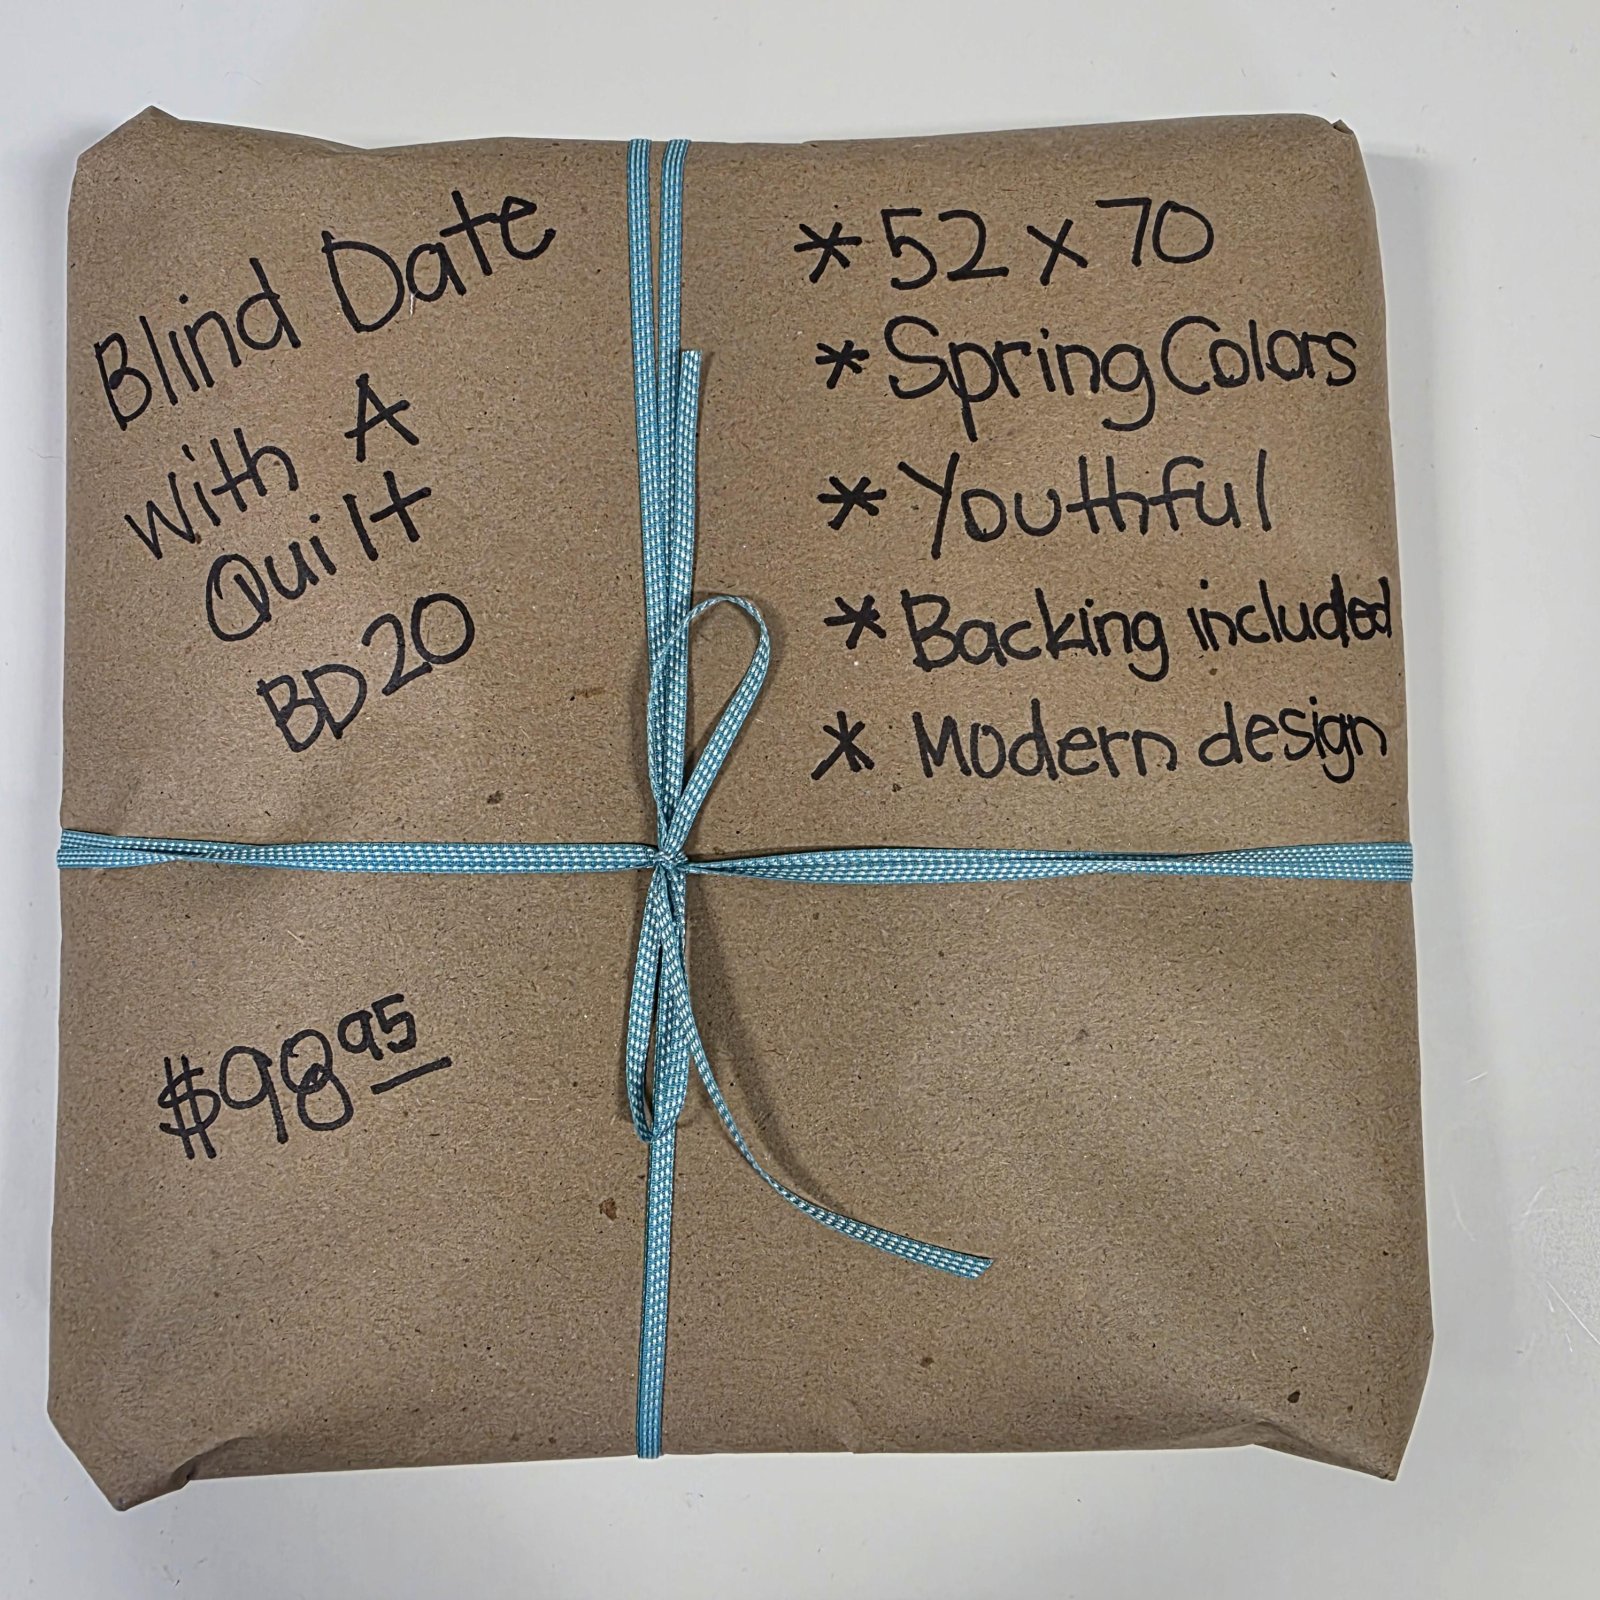 Blind Date
With A
Quilt
BD20
* 52 x 70
* Spring Colors
* Youthful
* Backing included
* Modern design
$98.95